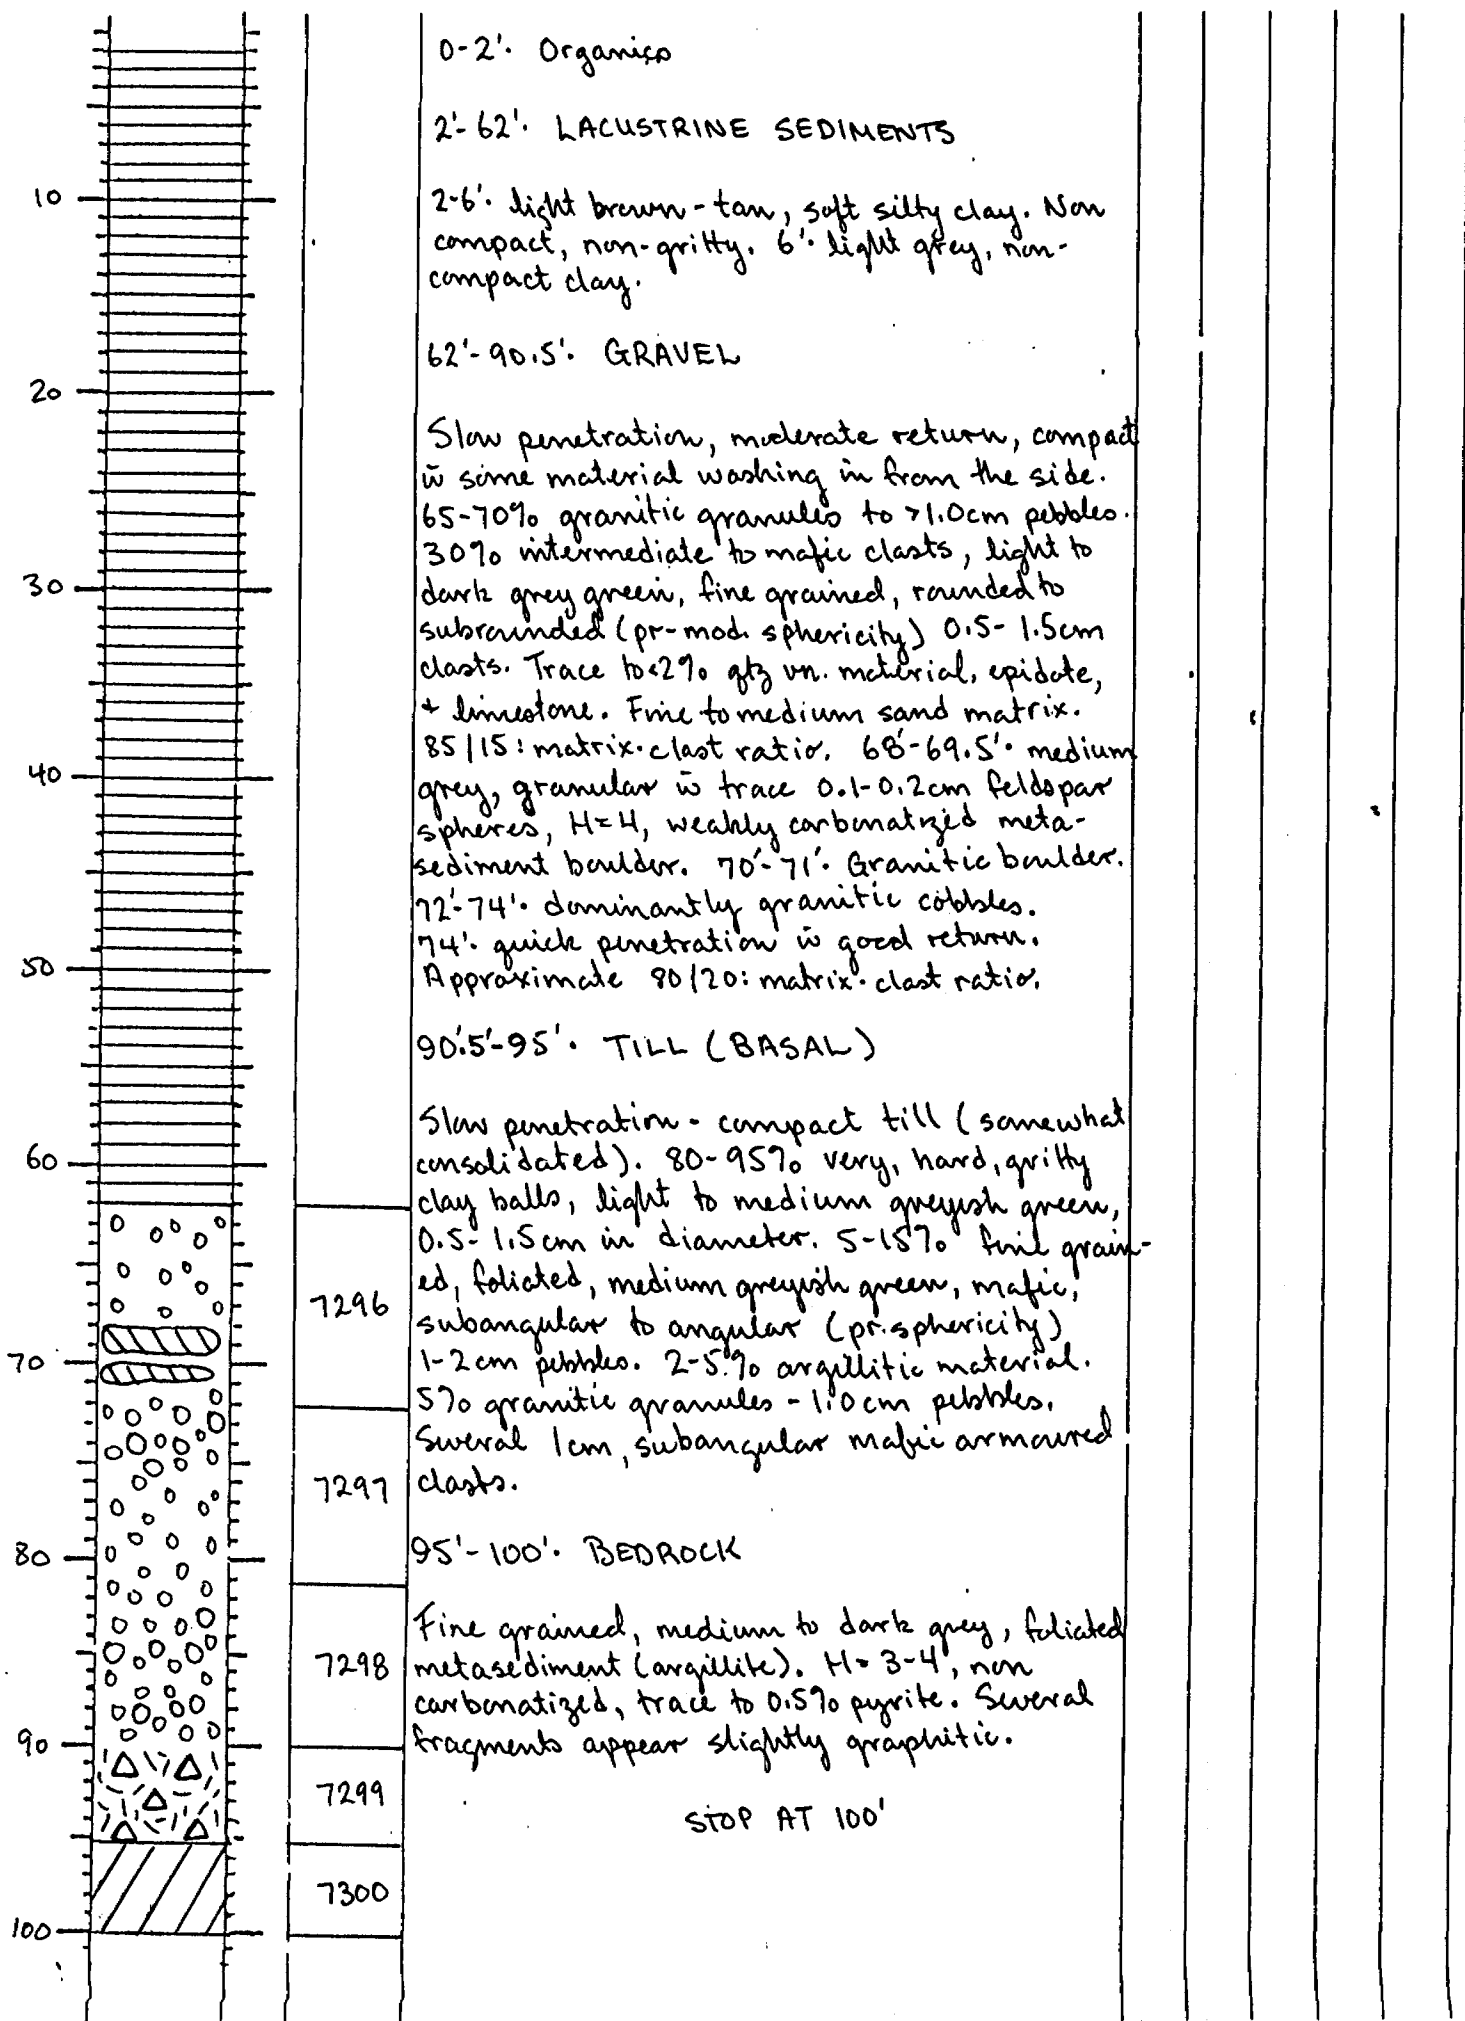 0-2'. Organics
2'-62'. LACUSTRINE SEDIMENTS
2-6'. light brown-tan, soft silty clay. Non
compact, non-gritty. 6'. light grey, non-
compact clay.
62'-90.5'. GRAVEL
Slow penetration, moderate return, compact
w̄ some material washing in from the side.
65-70% granitic granules to >1.0cm pebbles.
30% intermediate to mafic clasts, light to
dark grey green, fine grained, rounded to
subrounded (pr-mod. sphericity) 0.5-1.5cm
clasts. Trace to <2% qtz vn. material, epidote,
+ limestone. Fine to medium sand matrix.
85/15: matrix.clast ratio. 68'-69.5'. medium
grey, granular w̄ trace 0.1-0.2cm feldspar
spheres, H=4, weakly carbonatized meta-
sediment boulder. 70'-71'. Granitic boulder.
72'-74'. dominantly granitic cobbles.
74'. quick penetration w̄ good return.
Approximate 80/20: matrix.clast ratio.
90.5'-95'. TILL (BASAL)
Slow penetration - compact till (somewhat
consolidated). 80-95% very, hard, gritty
clay balls, light to medium greyish green,
0.5-1.5cm in diameter. 5-15% fine grain-
ed, foliated, medium greyish green, mafic,
subangular to angular (pr. sphericity)
1-2cm pebbles. 2-5% argillitic material.
5% granitic granules - 1.0cm pebbles.
Several 1cm, subangular mafic armoured
clasts.
95'-100'. BEDROCK
Fine grained, medium to dark grey, foliated
metasediment (argillite). H=3-4, non
carbonatized, trace to 0.5% pyrite. Several
fragments appear slightly graphitic.
STOP AT 100'
10
20
30
40
50
60
70
80
90
100
7296
7297
7298
7299
7300